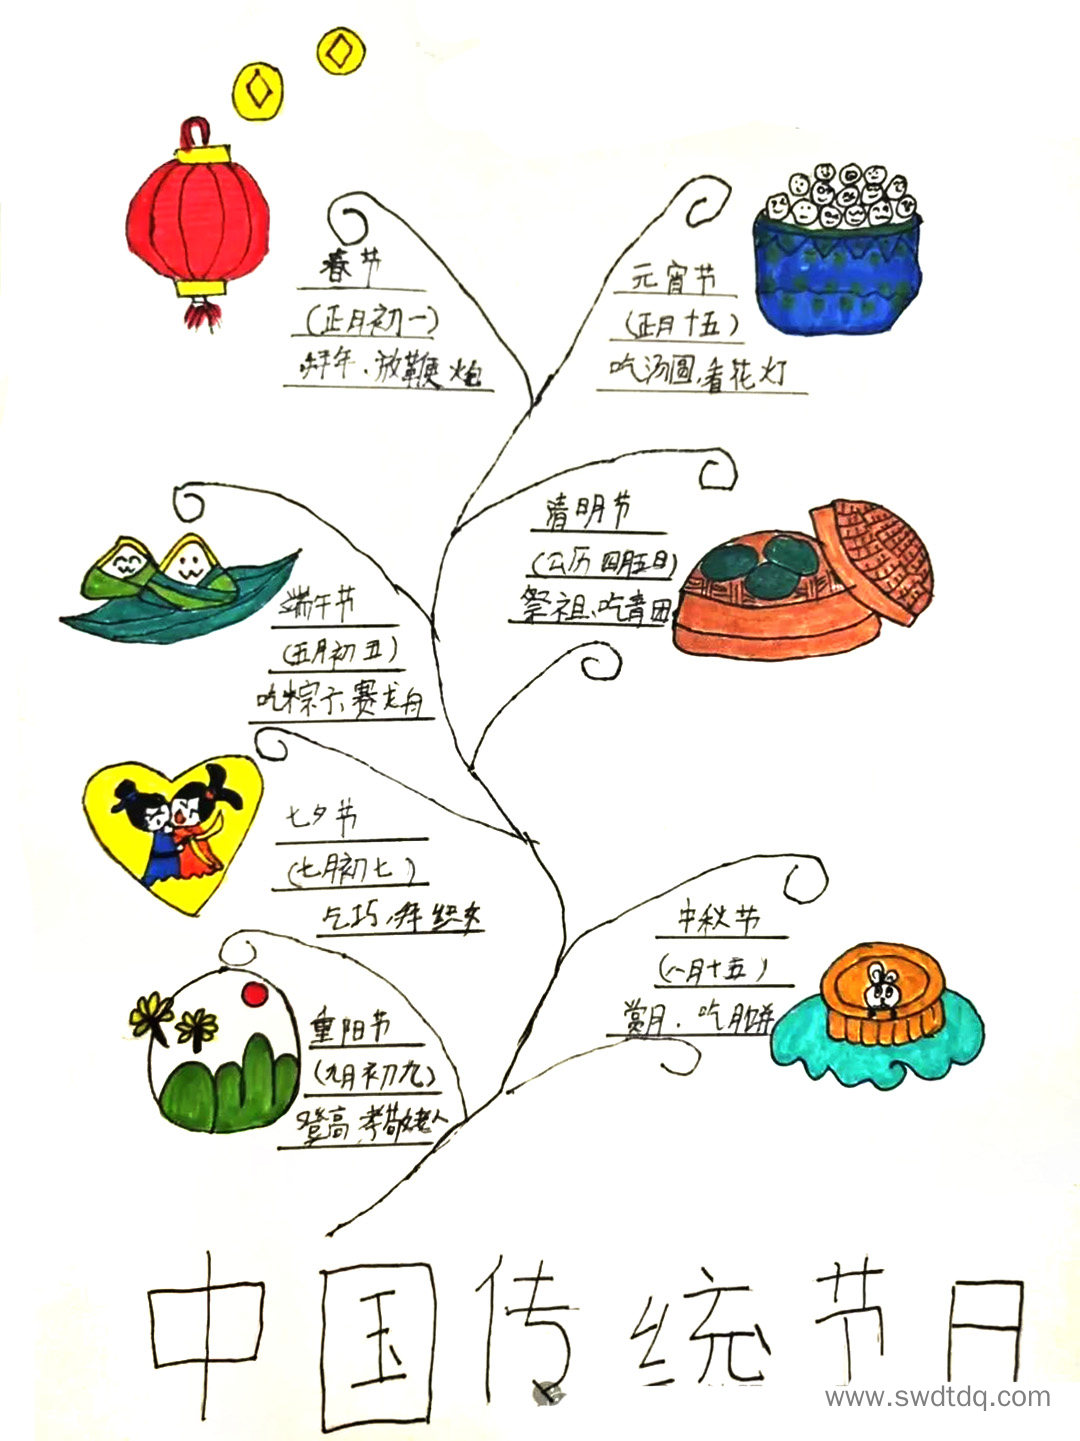 春节
(正月初一)
拜年、放鞭炮
元宵节
(正月十五)
吃汤圆、看花灯
清明节
(公历四月五日)
祭祖、吃青团
端午节
(五月初五)
吃粽子、赛龙舟
七夕节
(七月初七)
乞巧、拜织女
中秋节
(八月十五)
赏月、吃月饼
重阳节
(九月初九)
登高、孝敬老人
中国传统节日
www.swdtdq.com